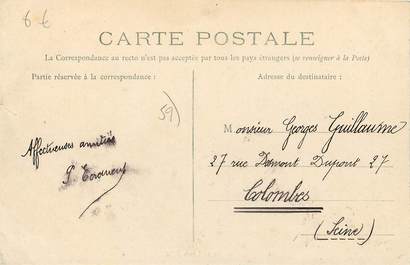 6 €
CARTE POSTALE
La Correspondance au recto n'est pas acceptée par tous les pays étrangers (se renseigner à la Poste)
Partie réservée à la correspondance :
Adresse du destinataire :
59)
Affectueuses amitiés
Monsieur Georges Guillaume
27 rue Dupont 27
Colombes
(Seine)